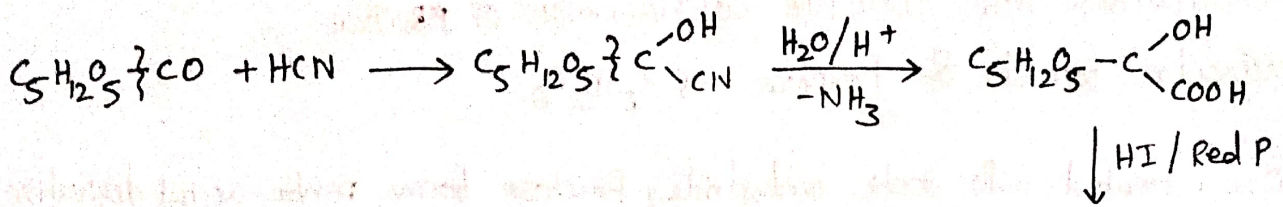 C5H12O5}CO + HCN ⟶ C5H12O5}C-OH -CN H2O/H+ -NH3 ⟶ C5H12O5-C-OH -COOH
↓ HI / Red P